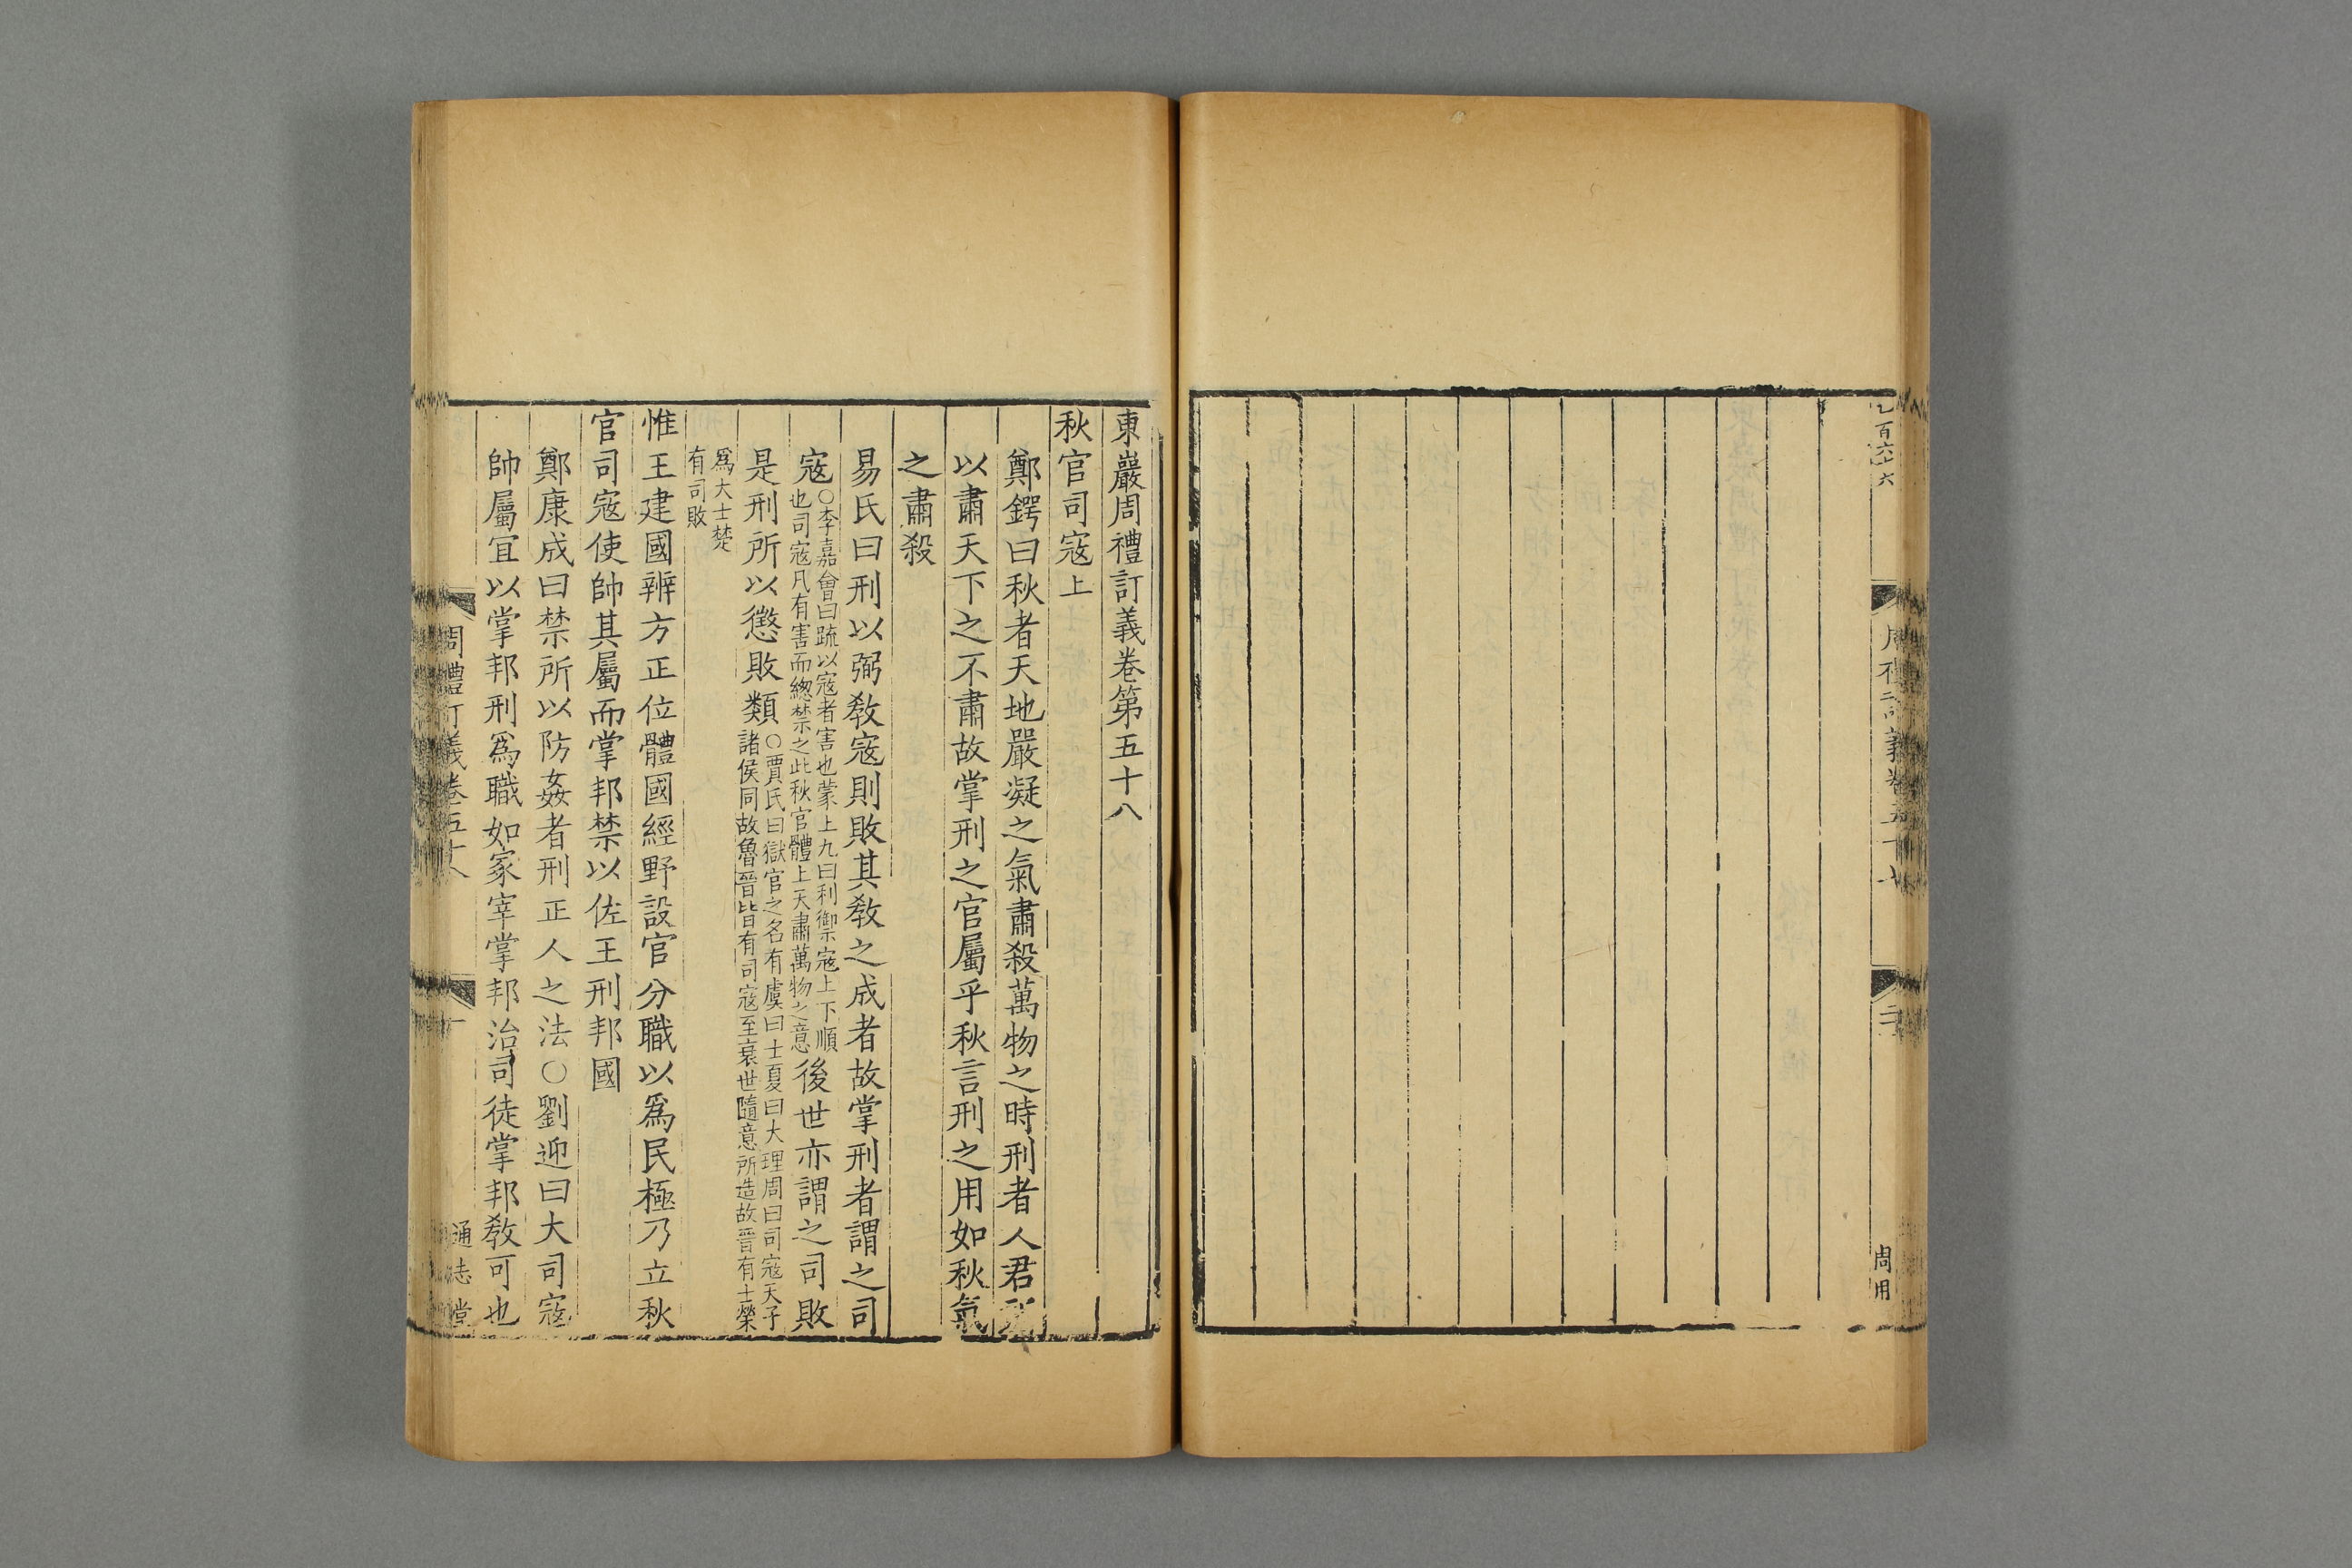 周用
東巖周禮訂義卷第五十八
秋官司寇上
鄭鍔曰秋者天地嚴凝之氣肅殺萬物之時刑者人君
以肅天下之不肅故掌刑之官屬乎秋言刑之用如秋氣
之肅殺
易氏曰刑以弼敎寇則敗其敎之成者故掌刑者謂之司
寇○李嘉會曰疏以寇者害也蒙上九曰利禦寇上下順
也司寇凡有害而緫禁之此秋官體上天肅萬物之意後世亦謂之司敗
是刑所以懲敗類○賈氏曰獄官之名有虞曰士夏曰大理周曰司寇天子
諸侯同故魯晉皆有司寇至衰世隨意所造故晉有士榮
爲大士楚
有司敗
惟王建國辨方正位體國經野設官分職以爲民極乃立秋
官司寇使帥其屬而掌邦禁以佐王刑邦國
鄭康成曰禁所以防姦者刑正人之法○劉迎曰大司寇
帥屬宜以掌邦刑爲職如冢宰掌邦治司徒掌邦敎可也
周禮訂義卷五十八
一
通志堂